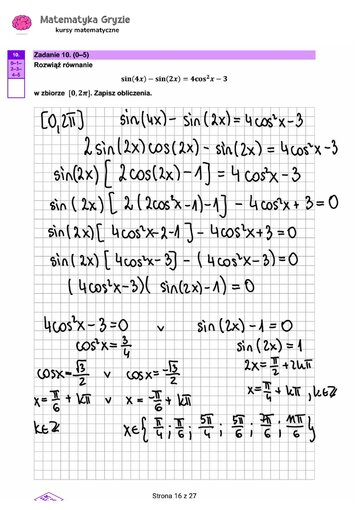 Matematyka Gryzie
kursy matematyczne
10.
0–1–
2–3–
4–5
Zadanie 10. (0–5)
Rozwiąż równanie
sin(4x) − sin(2x) = 4cos²x − 3
w zbiorze [0, 2π]. Zapisz obliczenia.
[0,2π] sin(4x) − sin(2x) = 4cos²x − 3
2 sin(2x) cos(2x) − sin(2x) = 4cos²x − 3
sin(2x) [ 2cos(2x) − 1] = 4cos²x − 3
sin(2x) [ 2(2cos²x − 1) − 1] − 4cos²x + 3 = 0
sin(2x) [ 4cos²x − 2 − 1] − 4cos²x + 3 = 0
sin(2x) [ 4cos²x − 3] − (4cos²x − 3) = 0
(4cos²x − 3)( sin(2x) − 1) = 0
4cos²x − 3 = 0 v sin(2x) − 1 = 0
cos²x = 3/4 sin(2x) = 1
cosx = √3/2 v cosx = −√3/2 2x = π/2 + 2kπ
x = π/6 + kπ v x = −π/6 + kπ x = π/4 + kπ, k∈ℤ
k∈ℤ x∈{ π/4 ; π/6 ; 5π/4 ; 5π/6 ; 7π/6 ; 11π/6 }
Strona 16 z 27